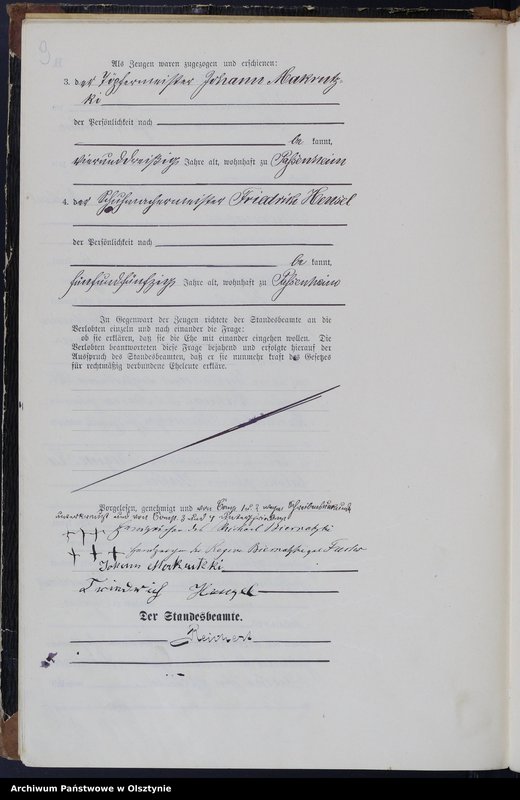 9
Als Zeugen waren zugezogen und erschienen:
3. der Töpfermeister Johann Makrutz-
ki
der Persönlichkeit nach
be kannt,
vierunddreißig Jahre alt, wohnhaft zu Passenheim
4. der Schuhmachermeister Friedrich Hensel
der Persönlichkeit nach
be kannt,
fünfundfünfzig Jahre alt, wohnhaft zu Passenheim
In Gegenwart der Zeugen richtete der Standesbeamte an die
Verlobten einzeln und nach einander die Frage:
ob sie erklären, daß sie die Ehe mit einander eingehen wollen. Die
Verlobten beantworteten diese Frage bejahend und erfolgte hierauf der
Ausspruch des Standesbeamten, daß er sie nunmehr kraft des Gesetzes
für rechtmäßig verbundene Eheleute erkläre.
Vorgelesen, genehmigt und von Comp. 1 u. 2 wegen Schreibensunkunde
und von Comp. 3 und 4 unterschrieben
+++ Handzeichen des Michael
+++ Handzeichen der
Johann Makrutzki
Friedrich Hensel
Der Standesbeamte.
Reichert
Archiwum Państwowe w Olsztynie